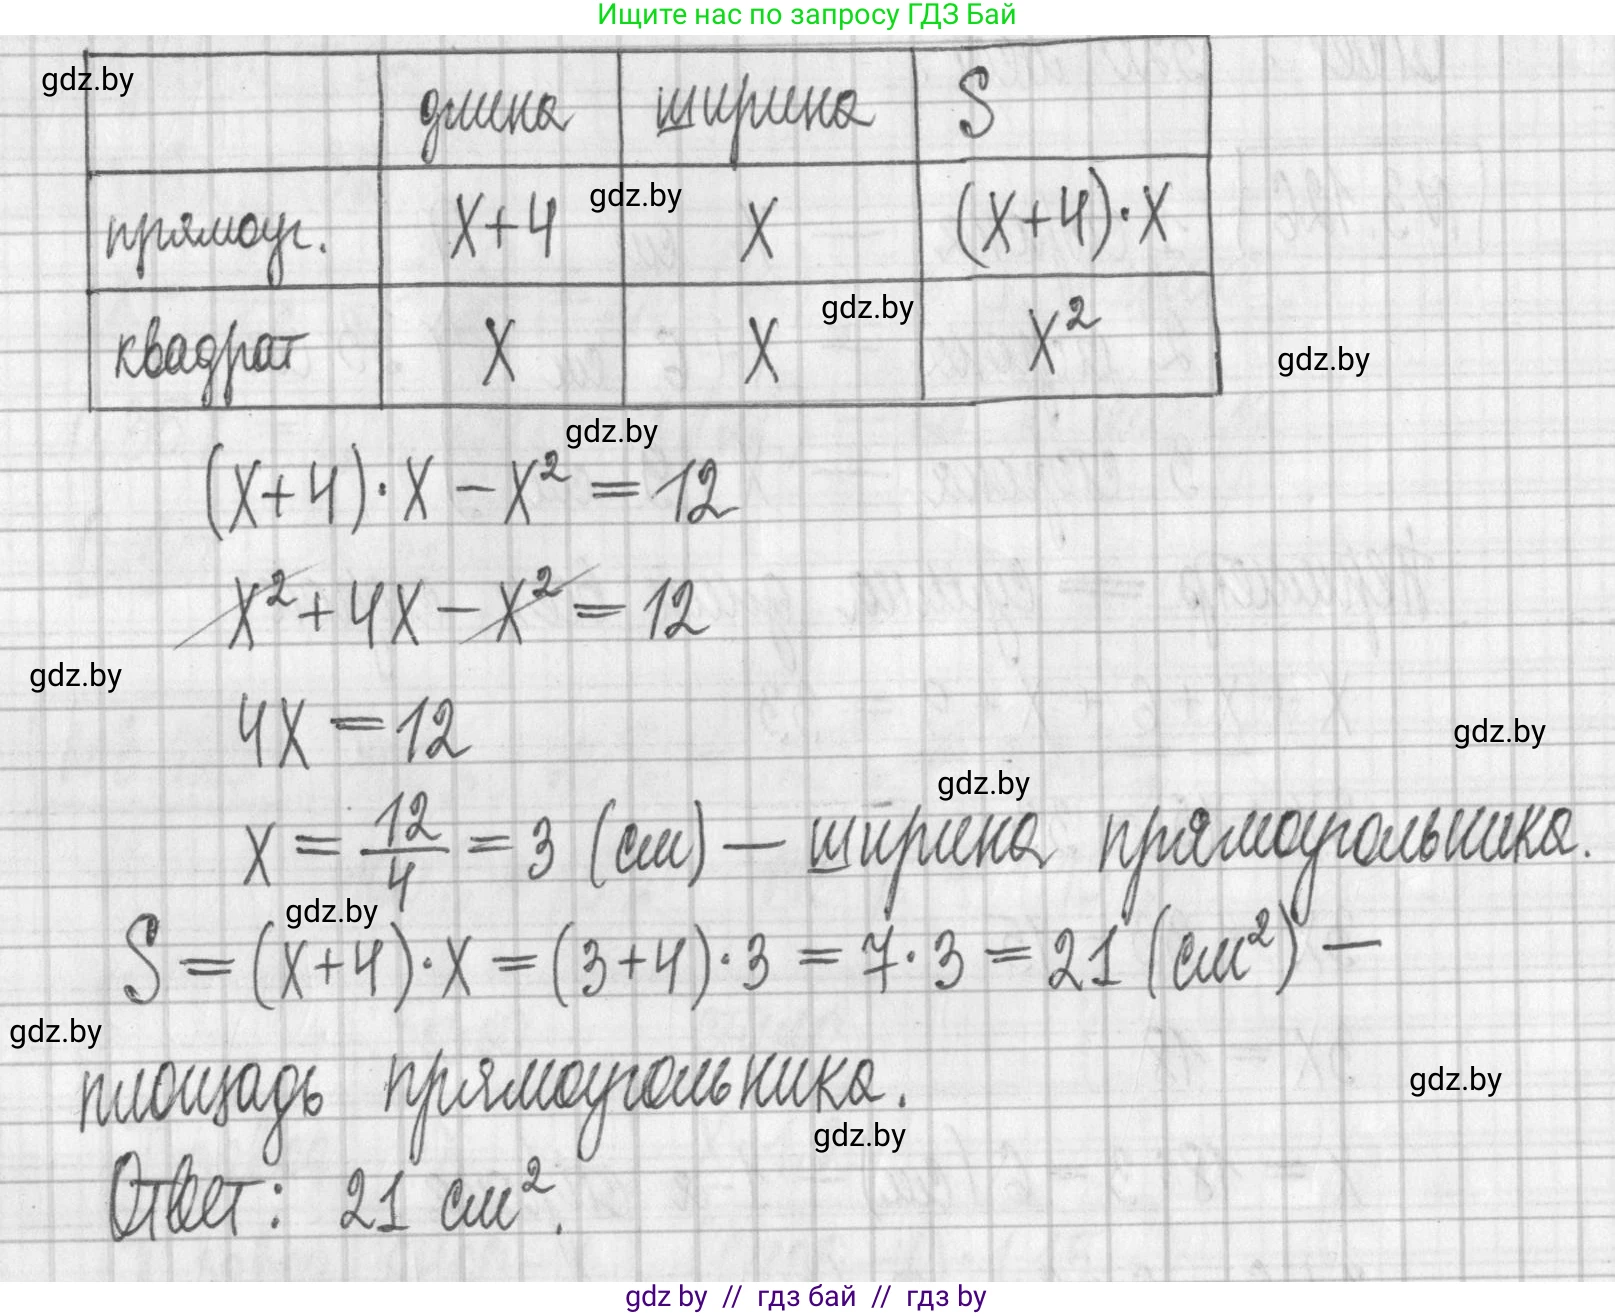 Ищите нас по запросу ГДЗ Бай
gdz.by
длина ширина S
прямоуг. x+4 gdz.by x (x+4)·x
квадрат x x gdz.by x²
gdz.by
gdz.by
(x+4)·x − x² = 12
x² + 4x − x² = 12
gdz.by
4x = 12
gdz.by
gdz.by
x = 12/4 = 3 (см) — ширина прямоугольника.
gdz.by
S = (x+4)·x = (3+4)·3 = 7·3 = 21 (см²) —
gdz.by
площадь прямоугольника.
gdz.by
gdz.by
Ответ: 21 см².
gdz by // гдз бай // гдз by